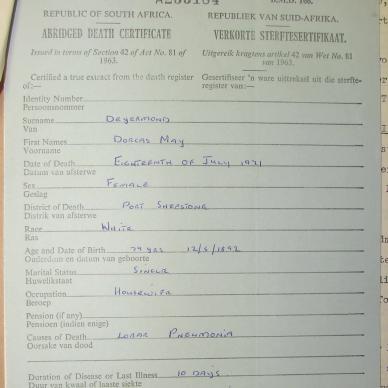 REPUBLIC OF SOUTH AFRICA. REPUBLIEK VAN SUID-AFRIKA.
ABRIDGED DEATH CERTIFICATE VERKORTE STERFTESERTIFIKAAT.
Issued in terms of Section 42 of Act No. 81 of 1963. Uitgereik kragtens artikel 42 van Wet No. 81 van 1963.
Certified a true extract from the death register of:— Gesertifiseer 'n ware uittreksel uit die sterfteregister van:—
Identity Number
Persoonsnommer
Surname Deyermond
Van
First Names Dorcas May
Voorname
Date of Death Eighteenth of July 1971
Datum van afsterwe
Sex Female
Geslag
District of Death Port Shepstone
Distrik van afsterwe
Race White
Ras
Age and Date of Birth 79 yrs
Ouderdom en datum van geboorte
Marital Status Single
Huwelikstaat
Occupation Housewife
Beroep
Pension (if any)
Pensioen (indien enige)
Causes of Death Lobar Pneumonia
Oorsake van dood
Duration of Disease or Last Illness 10 Days
Duur van kwaal of laaste siekte